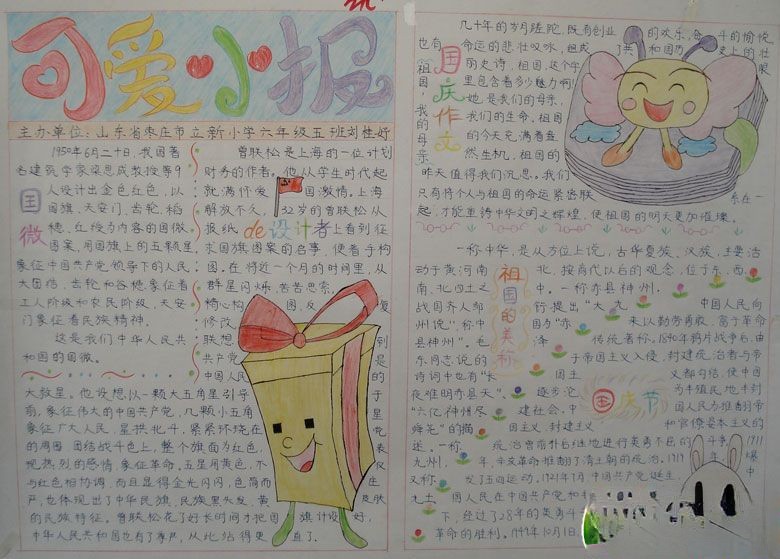 可爱小报
主办单位:山东省枣庄市立新小学六年级五班刘桂好
国微
1950年6月二十日,我国著
名建筑学家梁思成教授等9
人设计出金红色,以
国旗、天安门、齿轮、稻
穗、红绶为内容的国微
图案,用国旗上的五颗星
象征中国共产党领导下的人民
大团结,齿轮和谷穗象征着
工人阶级和农民阶级,天安
门象征着民族精神.
这是我们中华人民共
和国的国微。
de设计者
曾联松是上海的一位计划
财务的作者。他从学生时代起
就满怀爱国激情。上海
解放不久,32岁的曾联松从
报纸上看到征
求国旗图案的启事,便着手构
图。在将近一个月的时间里,从
群星闪烁、苦苦思索,
精心构图、反复
修改
联想到
共产党是
中国人民的
大救星。他设想以一颗大五角星引导于
前,象征伟大的中国共产党,几颗小五角星
象征广大人民,星拱北斗,紧紧环绕在党
的周围,团结战斗,整个旗面为红色,表
现热烈的感情,象征革命。五星用黄色,不仅
与红色相协调,而且显得金光闪闪,色简而庄
严;也体现出了中华民族、民族黑头发、黄皮肤
的民族特征。曾联松花了好长时间才把国旗计设好,
中华人民共和国也有了尊严,从此站得更直了.
国庆作文
几十年的岁月蹉跎,既有创业的欢乐,奋斗的愉悦,
也有命运的悲壮
丽史诗,祖国,这个字眼
里包含着多少魅力啊!
祖国,她是我们的母亲,
我们的生命,祖国
我的母亲
的今天充满着盎
然生机,祖国的
昨天值得我们沉思。我们
只有将个人与祖国的命运紧密联系在一
起,才能重铸中华文明之辉煌,使祖国的明天更加璀璨。
祖国的美称
一称中华,是从方位上说,古华夏族、汉族,主要活
动于黄河南北,按商代以后的观念,位于东、西、
南、北四土之中。一称赤县神州,
战国齐人邹衍提出"大九
州说",称中国为"赤
县神州"。毛泽
东同志说的
诗词中也有"长
夜难明赤县天",
"六亿神州尽
舜尧"的描
述。一称
九州,
又称
九土
国庆节
中国人民向
来以勤劳勇敢,富于革命
传统著称。1840年鸦片战争后,由
于帝国主义入侵,封建统治者与帝
国主义相勾结,使中国
逐步沦为半殖民地半封
建社会,中国人民为推翻帝
国主义,封建主义和官僚资本主义的
统治曾前仆后继地进行英勇不屈的斗争.1911
年,辛亥革命推翻了清王朝的统治,1919年爆
发了五四运动,1921年7月,中国共产党诞生,中
国人民在中国共产党
下,经过了28年的英勇斗
革命的胜利。1949年10月1